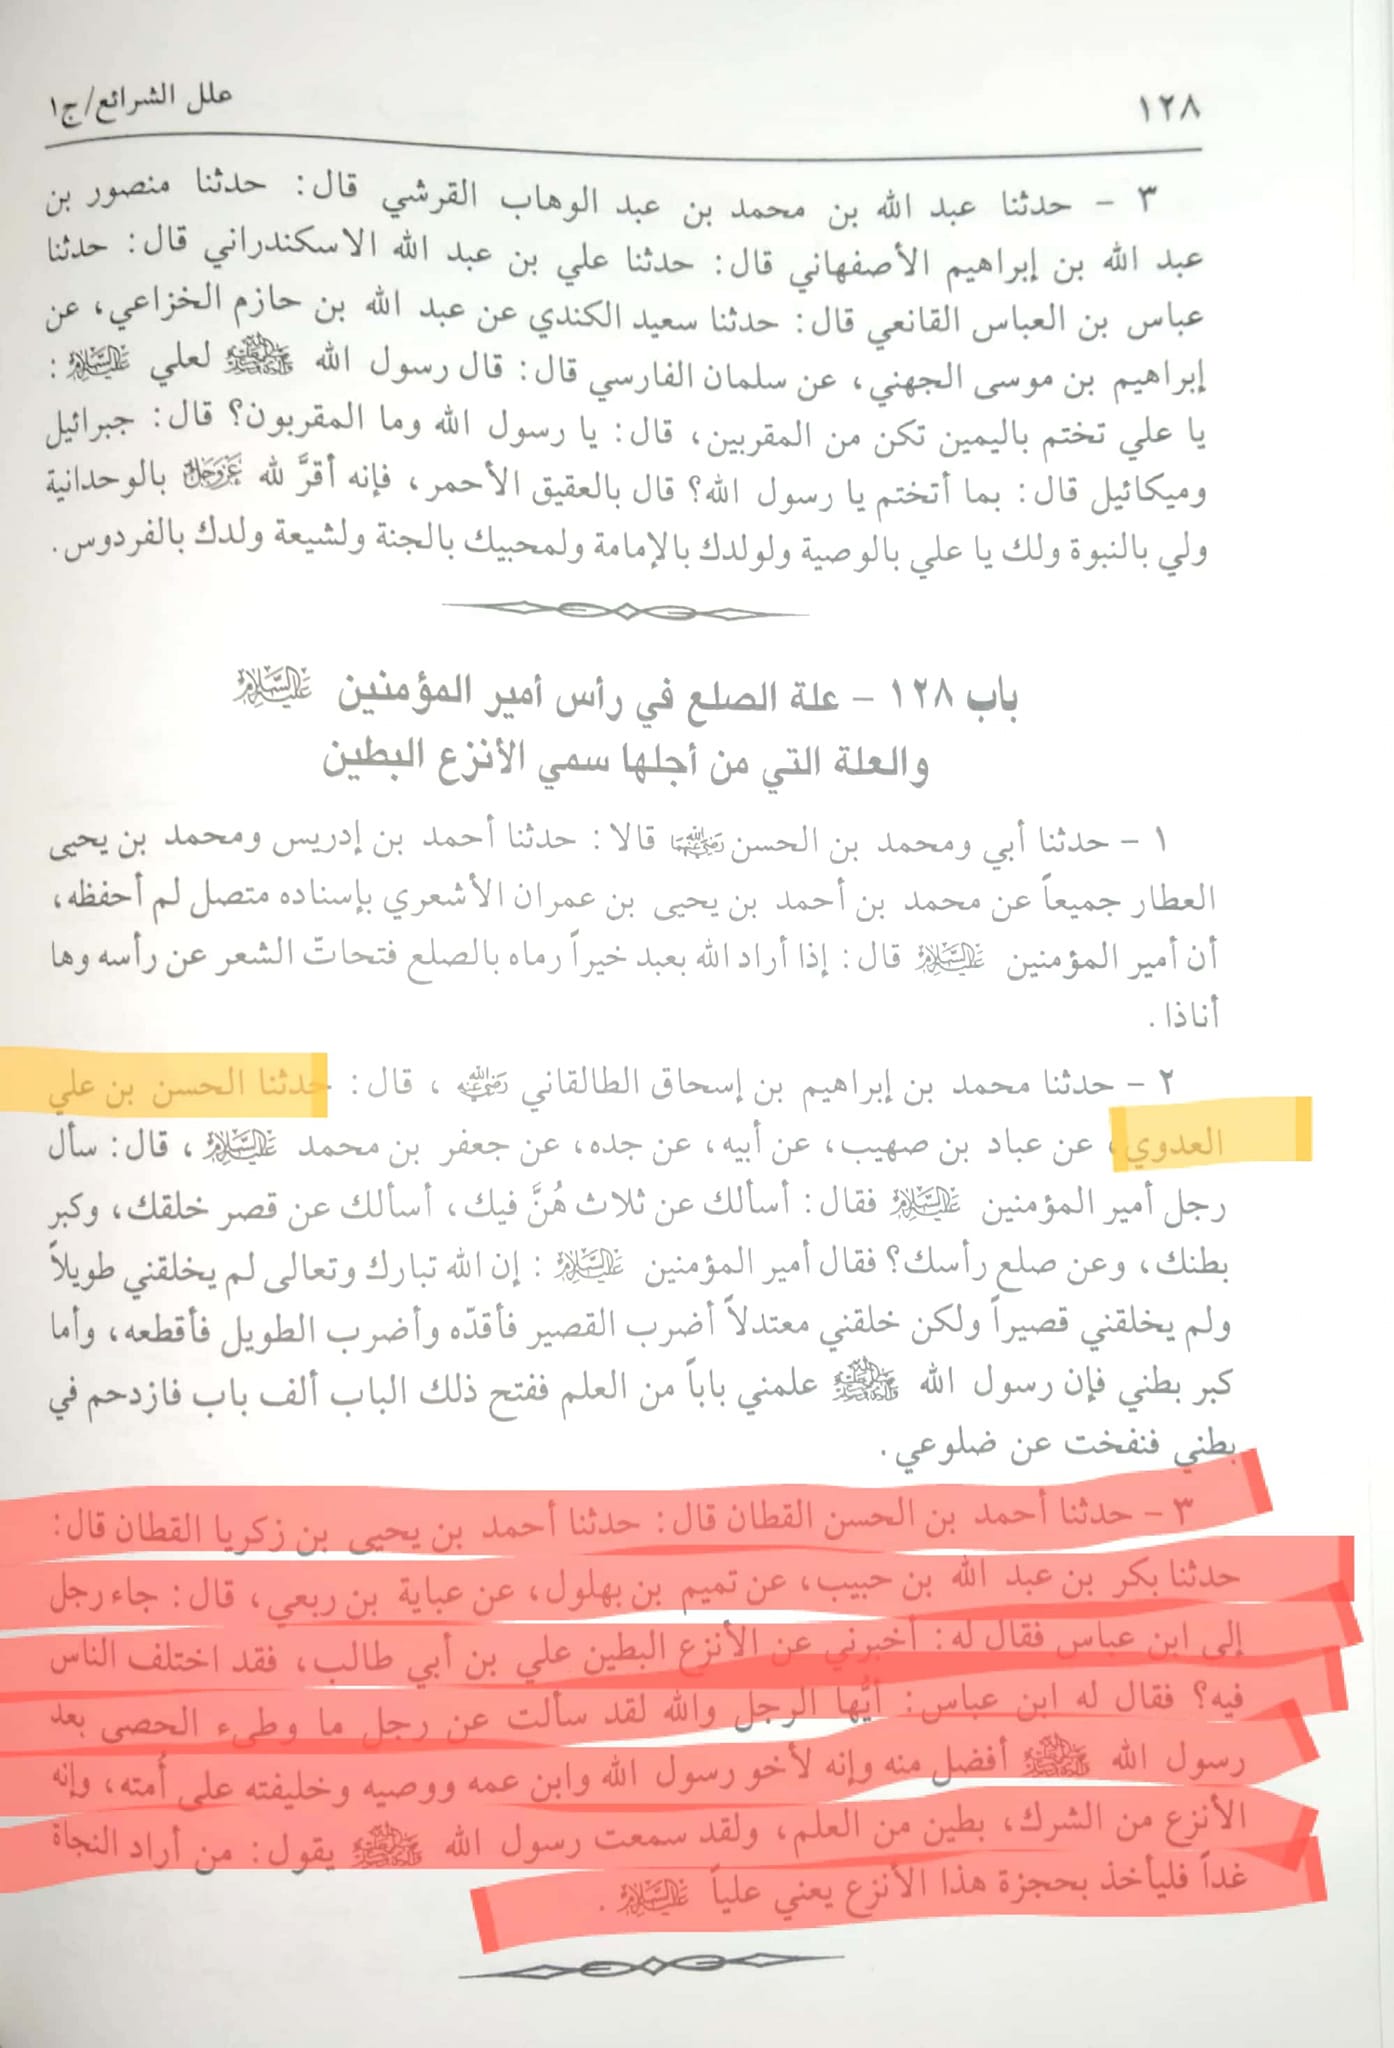 ١٢٨
علل الشرائع/ج١
٣ - حدثنا عبد الله بن محمد بن عبد الوهاب القرشي قال: حدثنا منصور بن
عبد الله بن إبراهيم الأصفهاني قال: حدثنا علي بن عبد الله الاسكندراني قال: حدثنا
عباس بن العباس القانعي قال: حدثنا سعيد الكندي عن عبد الله بن حازم الخزاعي، عن
إبراهيم بن موسى الجهني، عن سلمان الفارسي قال: قال رسول الله ﷺ لعلي عليه السلام :
يا علي تختم باليمين تكن من المقربين، قال: يا رسول الله وما المقربون؟ قال: جبرائيل
وميكائيل قال: بما أتختم يا رسول الله؟ قال بالعقيق الأحمر، فإنه أقرَّ لله عز وجل بالوحدانية
ولي بالنبوة ولك يا علي بالوصية ولولدك بالإمامة ولمحبيك بالجنة ولشيعة ولدك بالفردوس.
باب ١٢٨ - علة الصلع في رأس أمير المؤمنين عليه السلام
والعلة التي من أجلها سمي الأنزع البطين
١ - حدثنا أبي ومحمد بن الحسن رضي الله عنهما قالا: حدثنا أحمد بن إدريس ومحمد بن يحيى
العطار جميعاً عن محمد بن أحمد بن يحيى بن عمران الأشعري بإسناده متصل لم أحفظه،
أن أمير المؤمنين عليه السلام قال: إذا أراد الله بعبد خيراً رماه بالصلع فتحاتّ الشعر عن رأسه وها
أناذا.
٢ - حدثنا محمد بن إبراهيم بن إسحاق الطالقاني رضي الله عنه ، قال: حدثنا الحسن بن علي
العدوي، عن عباد بن صهيب، عن أبيه، عن جده، عن جعفر بن محمد عليه السلام ، قال: سأل
رجل أمير المؤمنين عليه السلام فقال: أسألك عن ثلاث هُنَّ فيك، أسألك عن قصر خلقك، وكبر
بطنك، وعن صلع رأسك؟ فقال أمير المؤمنين عليه السلام : إن الله تبارك وتعالى لم يخلقني طويلاً
ولم يخلقني قصيراً ولكن خلقني معتدلاً أضرب القصير فأقدّه وأضرب الطويل فأقطعه، وأما
كبر بطني فإن رسول الله ﷺ علمني باباً من العلم ففتح ذلك الباب ألف باب فازدحم في
بطني فنفخت عن ضلوعي.
٣ - حدثنا أحمد بن الحسن القطان قال: حدثنا أحمد بن يحيى بن زكريا القطان قال:
حدثنا بكر بن عبد الله بن حبيب، عن تميم بن بهلول، عن عباية بن ربعي، قال: جاء رجل
إلى ابن عباس فقال له: أخبرني عن الأنزع البطين علي بن أبي طالب، فقد اختلف الناس
فيه؟ فقال له ابن عباس: أيُّها الرجل والله لقد سألت عن رجل ما وطىء الحصى بعد
رسول الله ﷺ أفضل منه وإنه لأخو رسول الله وابن عمه ووصيه وخليفته على أُمته، وإنه
الأنزع من الشرك، بطين من العلم، ولقد سمعت رسول الله ﷺ يقول: من أراد النجاة
غداً فليأخذ بحجزة هذا الأنزع يعني علياً عليه السلام .